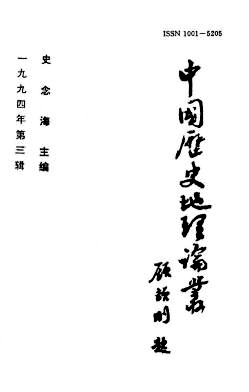 ISSN 1001-5205
中國歷史地理論叢
顧頡剛 題
史念海 主编
一九九四年第三辑